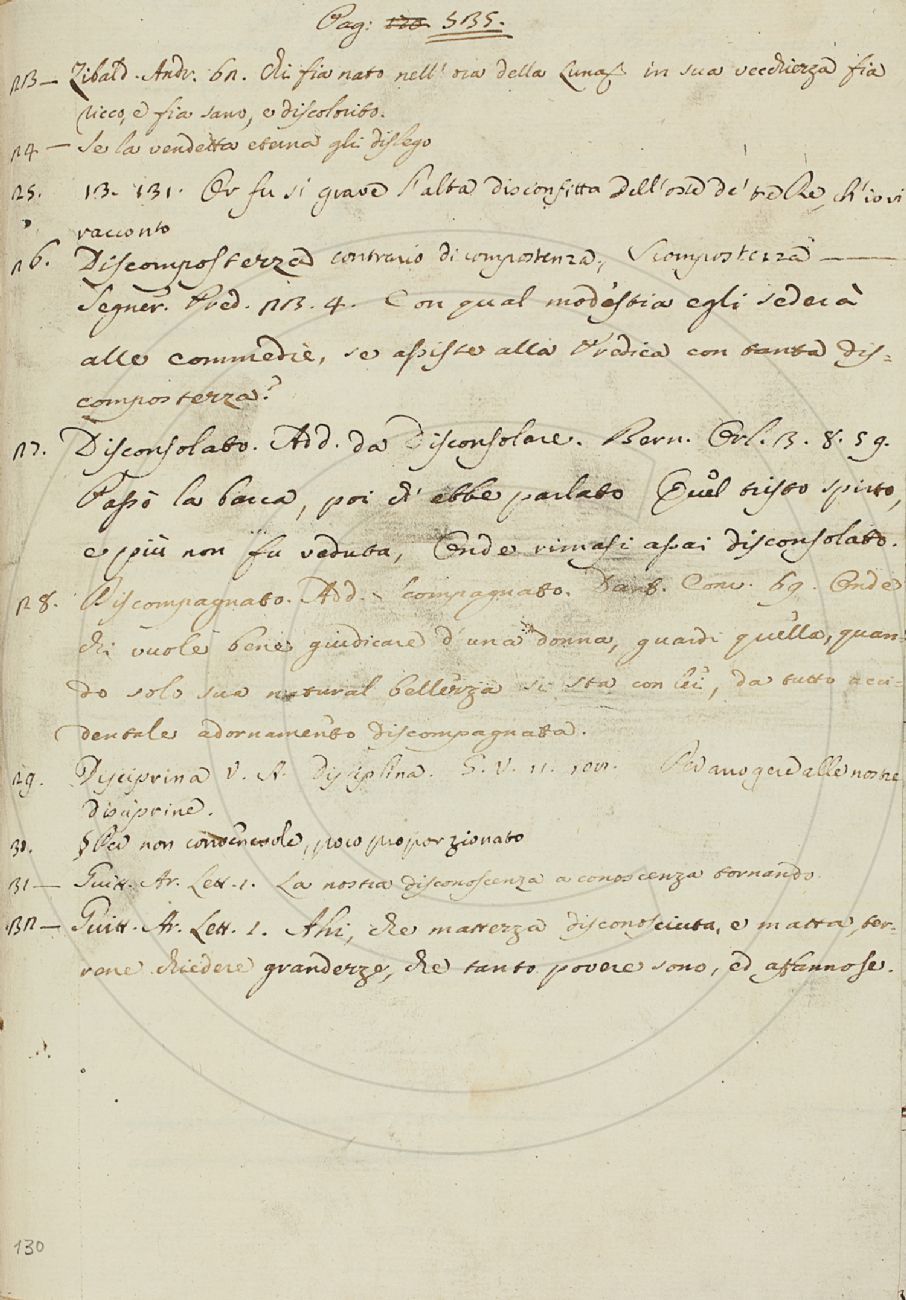 Pag: 120 535.
23 — Zibald. Andr. 62. Chi fia nato nell'ora della Luna in sua vecchiezza fia
ricco, e fia sano, e discolorito.
24 — Se la vendetta eterna gli dislego
25. 13. 131. Or fu sì grave l'alta disconfitta dell'oste de' tre Re, ch'io vi
racconto
26. Discompostezza contrario di compostezza, Scompostezza —
Segner. Pred. 23. 4. Con qual modestia egli sederà
alle commedie, se assiste alla Predica con tanta dis=
compostezza?
27. Disconsolato. Add. da Disconsolare. Bern. Orl. 3. 8. 59.
Passò la barca, poi ch'ebbe parlato Quel tristo spirto,
e più non fu veduta, Onde rimasi assai disconsolato.
28. Discompagnato. Add. Scompagnato. Dant. Conv. 69. Onde
chi vuole bene giudicare d'una donna, guardi quella, quan=
do solo sua natural bellezza si sta con lei, da tutto acci=
dentale adornamento discompagnata.
29. Disciprina V. A. Disciplina. G. V. 11. alle nostre
disciprine.
30. § Per non convenevole, poco proporzionato
31 — Guitt. Ar. Lett. 1. La nostra disconoscenza a conoscenza tornando.
32 — Guitt. Ar. Lett. 1. Ahi, che mattezza disconosciuta, e matta, ter=
rene chiedere grandezze, che tanto povere sono, ed affannose.
130